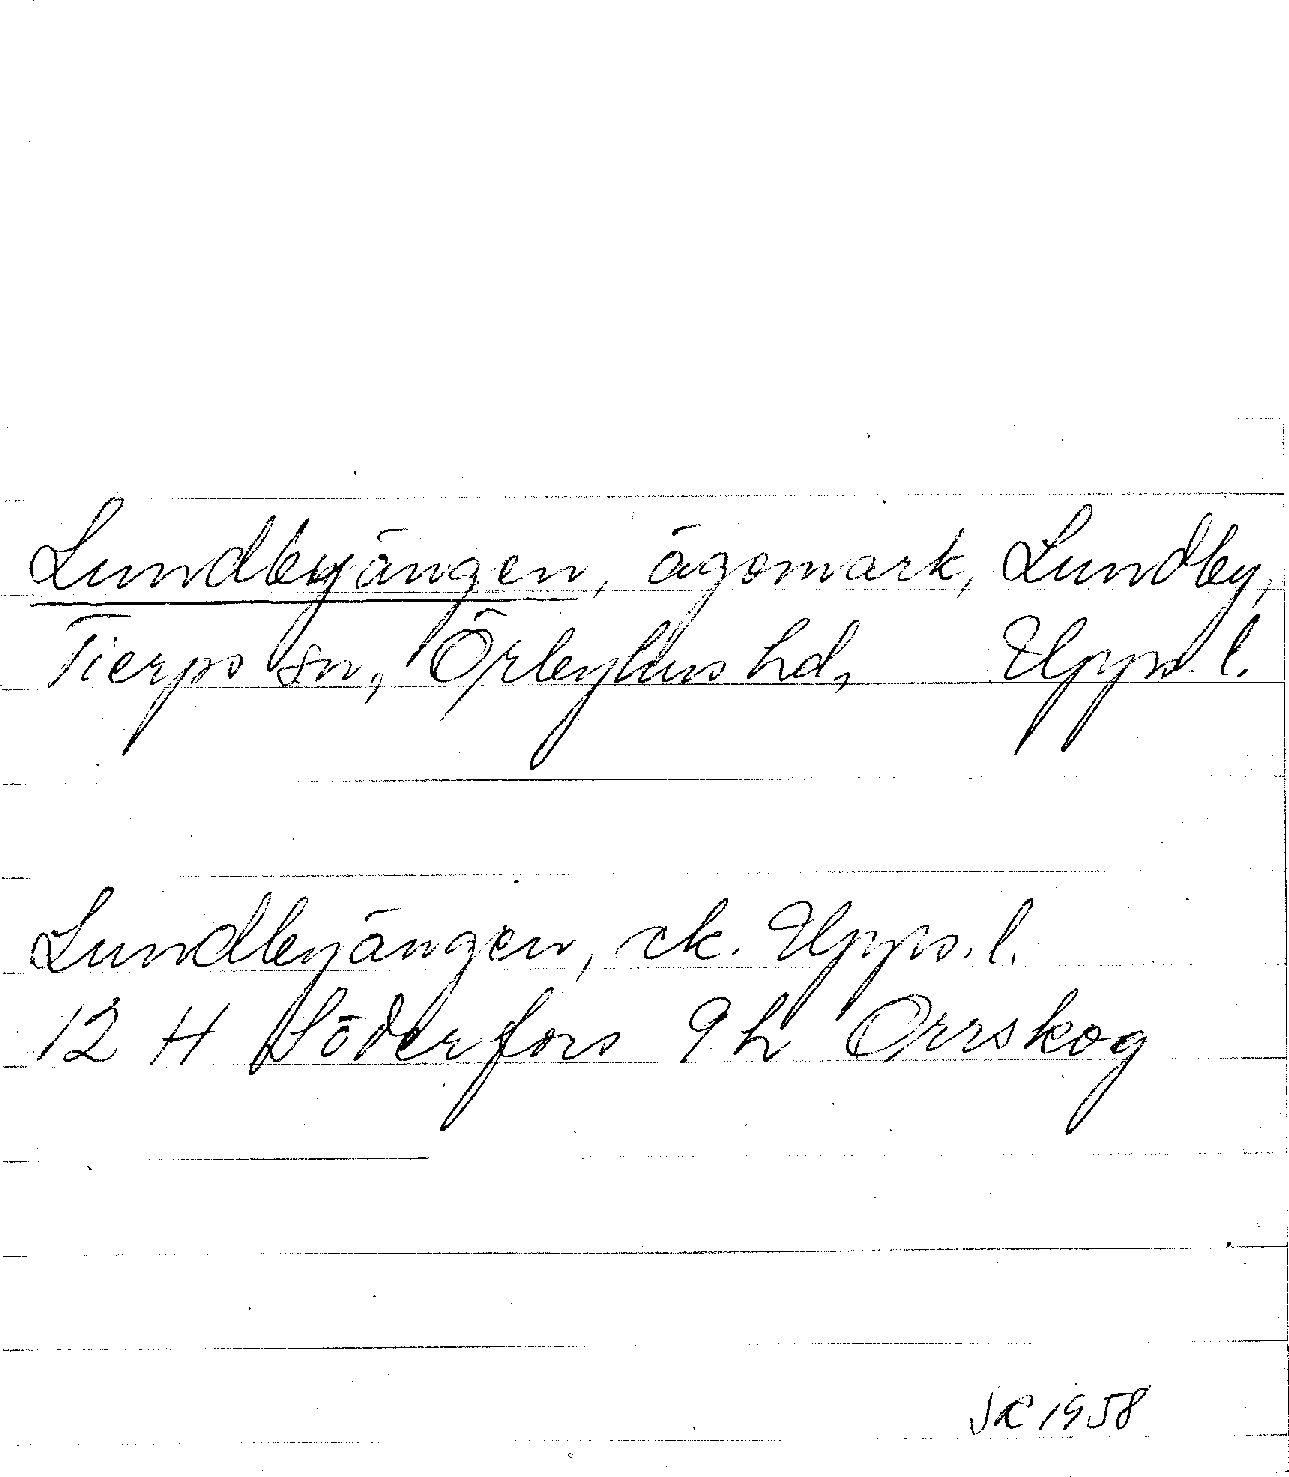 Lundbyängen, ägomark, Lundby,
Tierps sn, Örbyhus hd, Upps. l.
Lundbyängen, ek. Upps. l.
12 H Söderfors 9 h Orrskog
JR 1958